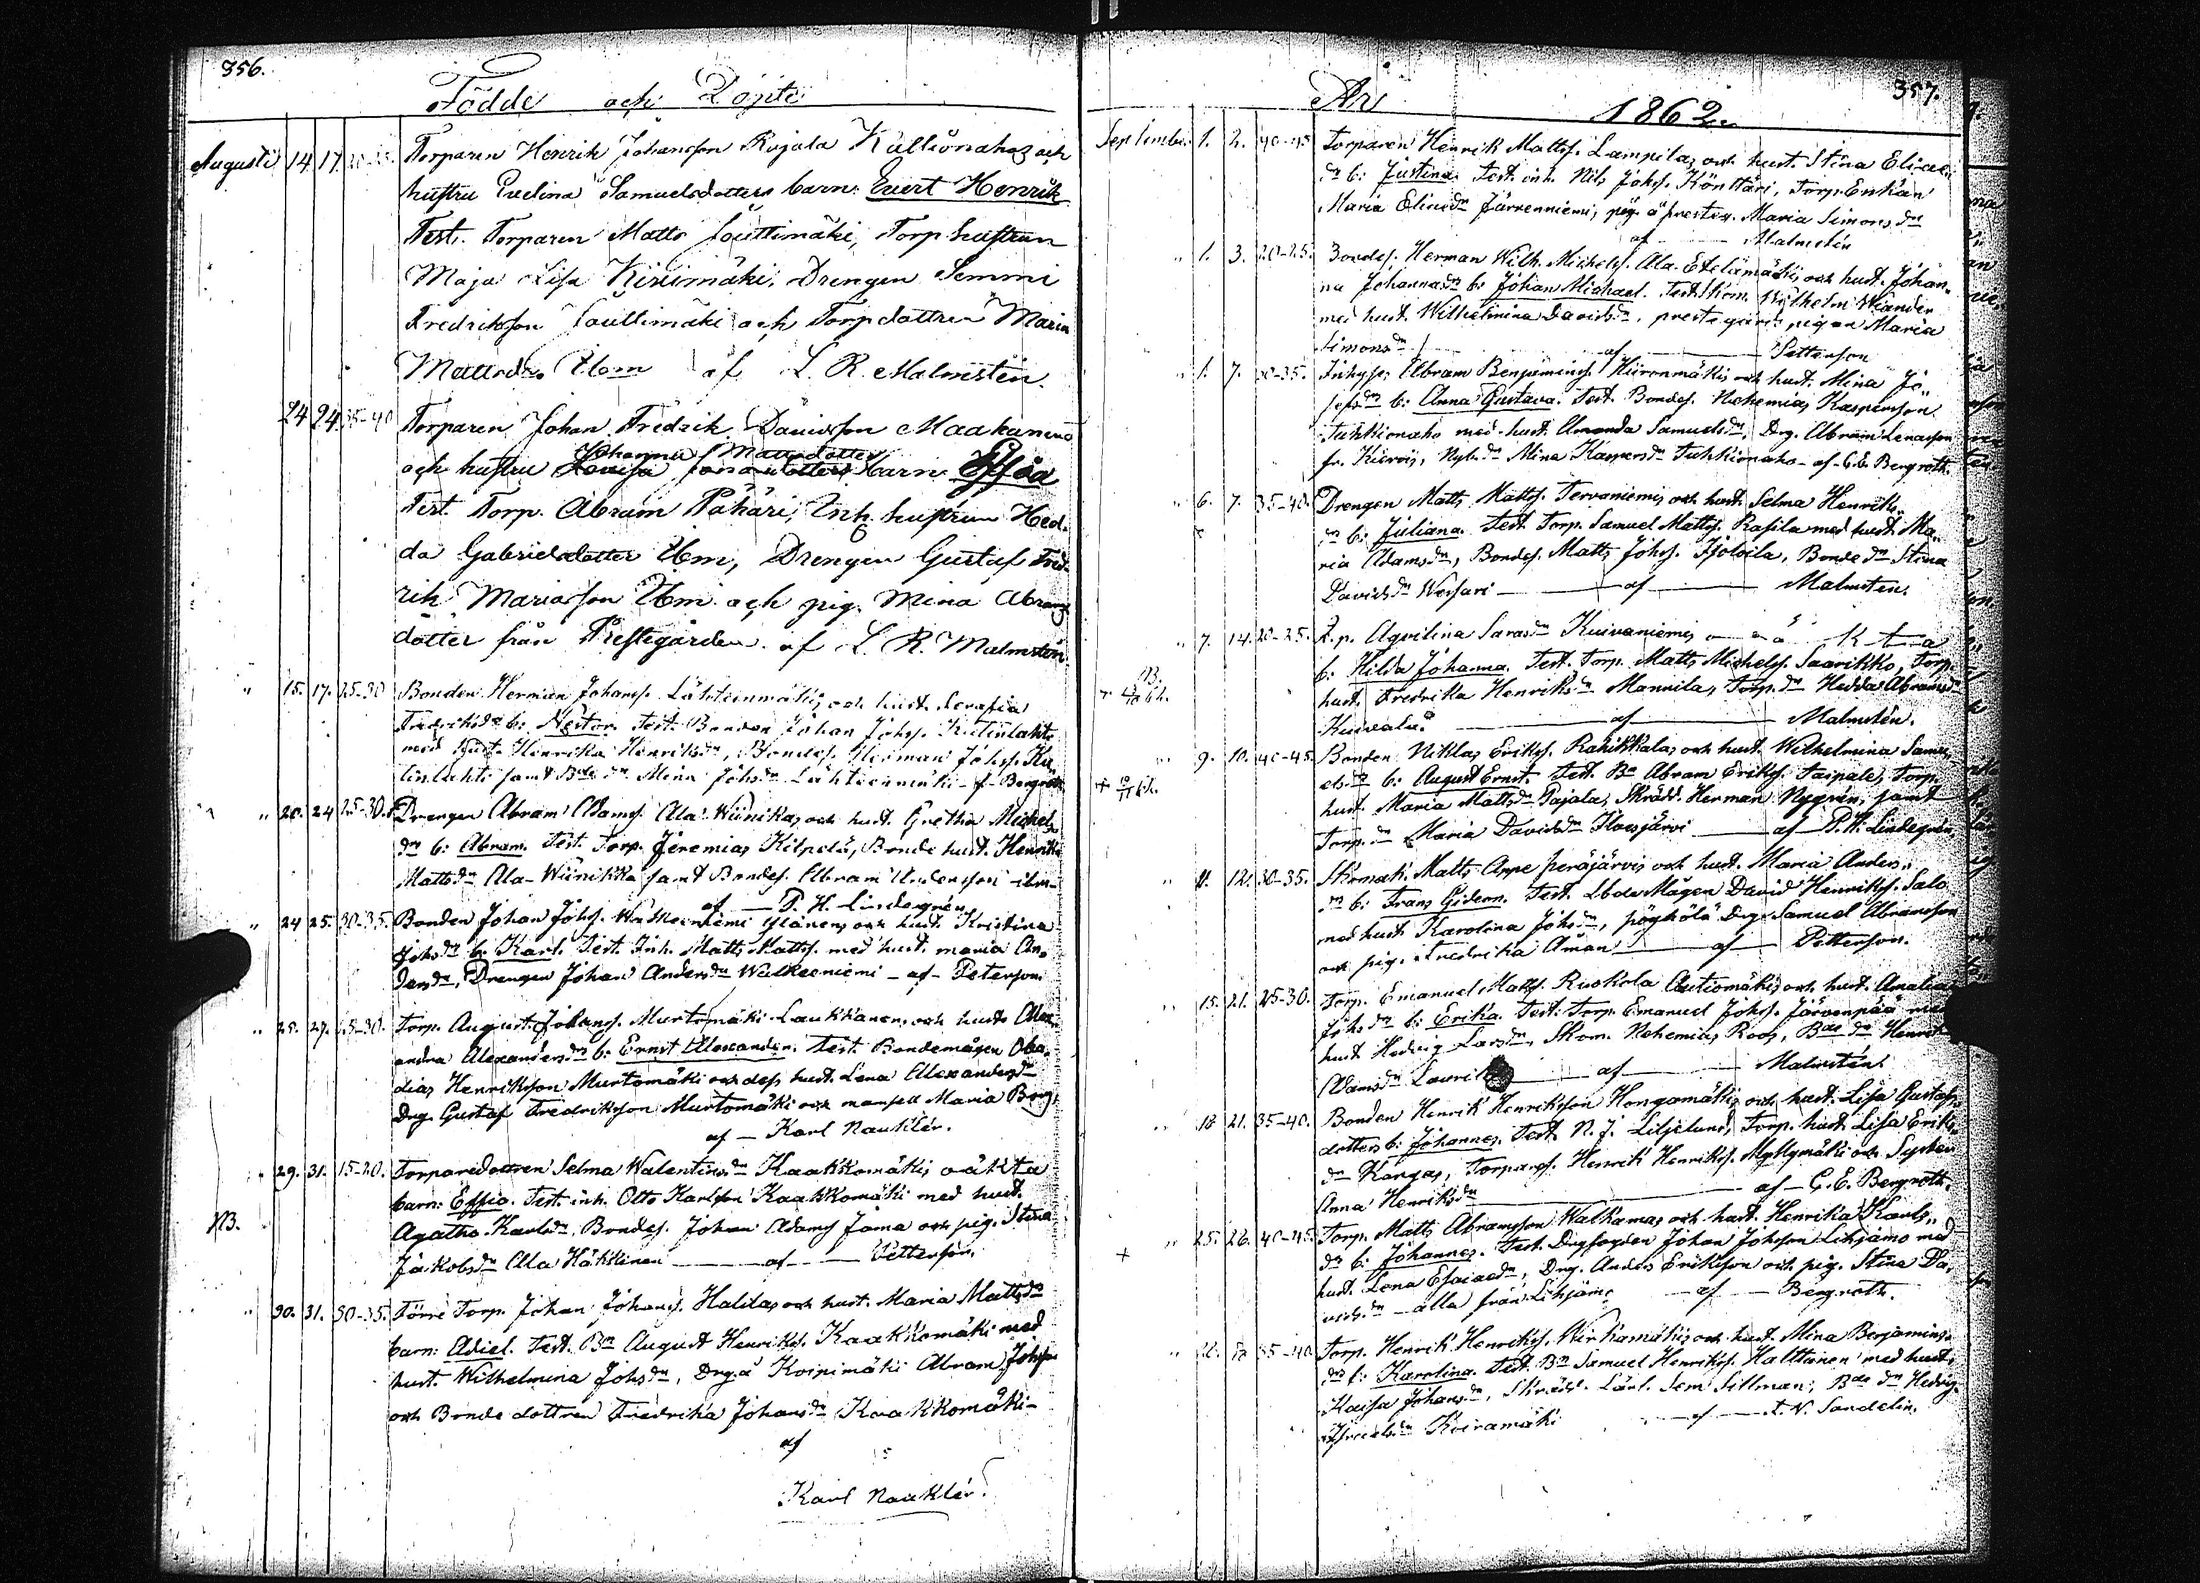 356.
Födde och Döpte
Augusti 14. 17. Torparen Henrik Johansson Rajala Kallionahos och
hustru Evelina Samuelsdotters barn: Evert Henrik
Test. Torparen Matts Souttimäki, Torp hustrun
Maja Lisa Kirsimäki, Drengen Semmi
Fredriksson Souttimäki och Torpdottren Maria
Mattsdr Ibm af L. R. Malmstén.
24 24 35-40 Torparen Johan Fredrik Davidsson Maakunens
Johanna Mattsdotter
och hustru Lovisa barn Effia
Test. Torp. Abram Pähäri, Inh. hustrun Hed-
da Gabrielsdotter Ibm, Drengen Gustaf Fred-
rik Mariasson Ibm och pig. Mina Abrams
dotter från Prestegården af L. R. Malmstén
" 15. 17. 25-30 Bonden Herman Johanss. Lähteenmäkis och hust. Serafia
Fredriksdr b: Nestor. Test. Bonden Johan Johss. Kulinlahti
med hust. Henrika Henriksdn, Bondes. Herman Johss. Ku-
linlahti samt Bde dn Mina Johsdn Lähteenmäki - af Bergroth
" 20. 24 25-30. Drengen Abram Adams. Ala Wiinikas och hust. Gretha Michels
dn b: Abram. Test. Torp. Jeremias Kilpelä, Bonde hust. Henrika
Mattsdn Ala-Wiinikka samt Bondes. Abram Andersson ibm-
af — P. H. Lindegrén
" 24 25. 30-35. Bonden Johan Johss. Walkeeniemi Ylänens och hust. Kristina
Johsdn b: Karl. Test. Inh. Matts Mattss. med hust. Maria An-
dersdn, Drengen Johan Andersdn Walkeeniemi - af - Peterson.
" 25. 27. 25-30. Torp. August Johanss. Murtomäki Laukkanens och hust. Alex-
andra Alexandersdn b: Ernst Alexander. Test. Bondemågen Oba-
dias Henriksson Murtomäki och dess hust. Lena Alexandersdn
Drg. Gustaf Fredriksson Murtomäki och mamsell Maria Berg,
af — Karl Nauklér.
" 29. 31. 15-20. Torparedottren Selma Walentinsdn Kaakkomäkis oäkta
barn: Effia. Test. inh. Otto Karlsson Kaakkomäki med hust.
NB. Agatha Karlsdn, Bondes. Johan Adams Jama och pig. Stina
Jakobsdn Ala Häkkinen — af — Petterson.
" 30. 31. 30-35. Förre Torp. Johan Johans. Halilas och hust. Maria Mattsdn
barn: Adiel. Test. Bn August Henrikss. Kaakkomäki med
hust. Wilhelmina Johsdn, Drg. å Koipimäki Abram Johss.
och Bonde dottren Fredrika Johansdn Kaakkomäki-
af
Karl Nauklér.
357.
År 1862.
September. 1. 2. 40-45 Torparen Henrik Mattss. Lampilas och hust. Stina Eliae
dn b: Justina. Test. inh. Nils Johss. Könttäri, Torp. Enkan
Maria Eliaedn Järvenniemi, pig. å prestg. Maria Simonsdn
af — Malmstén
" 1. 3. 20-25. Bondes. Herman Wilh. Michelss. Ala-Etelämäkis och hust. Johan-
na Johannadn b: Johan Michael. Test. Skom. Wilhelm Wiander
med hust. Wilhelmina Davidsdn, prestegårds pigan Maria
Simonsdn — af — Petterson
" 1. 7. 30-35. Inhyss: Abram Benjamins. Hiironmäkis och hust. Mina Jo-
sefsdn b: Anna Gustava. Test. Bondes. Nehemias Kaspersson
Tuhkionaho med hust. Amanda Samuelsdn, Drg. Abram Lenasson
fr. Kiärois, Nyb. dn Mina Kaspersdn Tuhkionaho - af - G. E. Bergroth.
" 6. 7. 35-40. Drengen Matts Mattss. Tervaniemis och hust. Selma Henriks-
dn b: Juliana. Test. Torp. Samuel Mattss. Rasila med hust. Ma-
ria Adamsdn, Bondes. Matts Johss. Isoloila, Bonde dn Stina
Davidsdn Wessari — af — Malmstén.
" 7. 14. 20-25. T.p. Aqvilina Sarasdn Kuivaniemis o ä k t a
b: Hilda Johanna. Test. Torp. Matts Michelss. Saarikko, Torp.
NB. hust. Fredrika Henriksdn Mannila, Torp. dn Hedda Abramsdn
Kuivala. — af — Malmstén.
" 9. 10. 40-45. Bonden Niklas Erikss. Rahikkalas och hust. Wilhelmina Samu-
elsdn b: August Ernst. Test. Bn Abram Erikss. Taipale, Torp.
hust. Maria Mattsdn Pajala, Skrädd. Herman Nygrén, samt
Torp. dn Maria Davidsdn Haesjärvi — af P. H. Lindegrén
" 11. 12. 30-35. Skomak. Matts Arpe peräjärvis och hust. Maria Anders-
dn b: Frans Gideon. Test. Lbde Mågen David Henrikss. Salo
med hust. Karolina Johsdn, pöyhölä Drg. Samuel Abramsson
och pig. Fredrika Åman — af — Petterson.
" 15. 21. 25-30. Torp. Emanuel Mattss. Ruskola Autiomäkis och hust. Amalia
Johsdn b: Erika. Test. Torp. Emanuel Johss. Järvenpää med
hust. Hedvig Larsdn, Skom. Nehemias Roos, Bde dn Henrika
Adamsdn Laurik — af — Malmstén.
" 18 21. 35-40. Bonden Henrik Henriksson Hongamäkis och hust. Lisa Gustafs-
dotters b: Johannes. Test. N. J. Liljelund, Torp. hust. Lisa Eriks-
dn Kangas, Torpares. Henrik Henrikss. Myllymäki och Syster
Anna Henriksdn — af — G. E. Bergroth.
+ " 25. 26. 40-45. Torp. Matts Abramsson Walkamas och hust. Henrika Karls-
dn b: Johannes. Test. Drgfogden Johan Johsson Lihjamo med
hust. Lena Esaiaedn, Drg. Anders Eriksson och pig. Stina Da-
vidsdn - alla från Lihjamo — af — Bergroth.
" 35-40 Torp. Henrik Henrikss. Wirkamäkis och hust. Mina Benjamins-
dn b: Karolina. Test. Bn Samuel Henrikss. Halttunen med hust.
Kaisa Johansdn, Skrädd. Lärl. Sem Sillman, Bde dn Hedvig
Israelsdn Koiramäki — af — A. N. Sandelin.